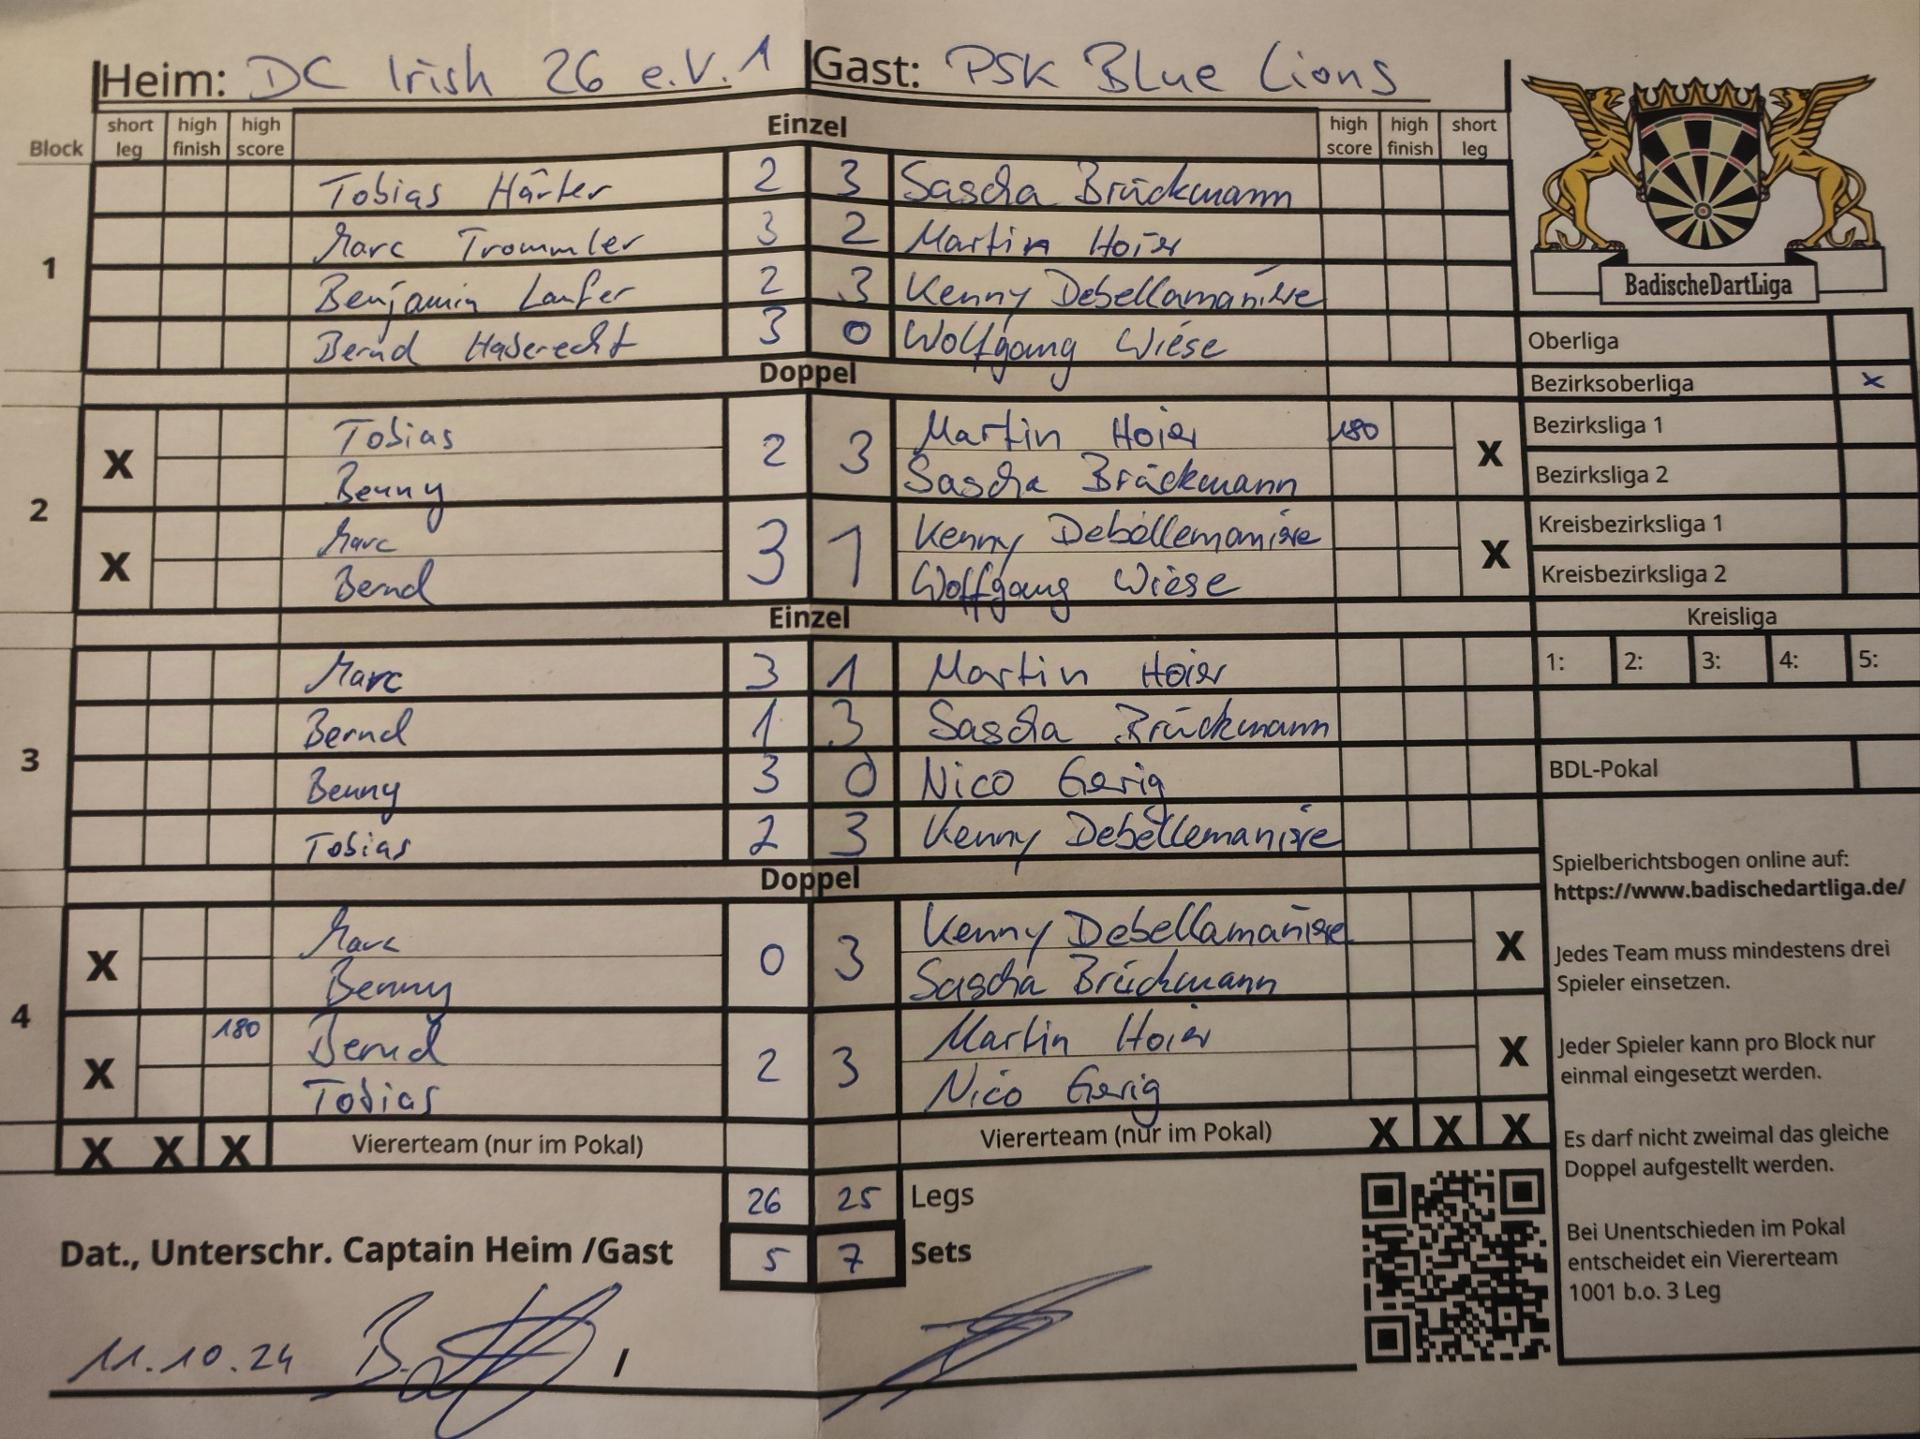 Heim: DC Irish 26 e.V. 1 Gast: PSK Blue Lions
Block short leg high finish high score Einzel high score high finish short leg
1
Tobias Härter 2 3 Sascha Brückmann
Marc Trommler 3 2 Martin Hoier
Benjamin Laufer 2 3 Kenny Debellamanière
Bernd Haberecht 3 0 Wolfgang Wiese
Doppel
2
X Tobias 2 3 Martin Hoier 180 X
Benny Sascha Brückmann
X Marc 3 1 Kenny Debellemanière X
Bernd Wolfgang Wiese
Einzel
3
Marc 3 1 Martin Hoier
Bernd 1 3 Sascha Brückmann
Benny 3 0 Nico Gerig
Tobias 2 3 Kenny Debellemanière
Doppel
4
X Marc 0 3 Kenny Debellamanière X
Benny Sascha Brückmann
X 180 Bernd 2 3 Martin Hoier X
Tobias Nico Gerig
X X X Viererteam (nur im Pokal) Viererteam (nur im Pokal) X X X
26 25 Legs
Dat., Unterschr. Captain Heim /Gast 5 7 Sets
11.10.24 /
BadischeDartLiga
Oberliga
Bezirksoberliga x
Bezirksliga 1
Bezirksliga 2
Kreisbezirksliga 1
Kreisbezirksliga 2
Kreisliga
1: 2: 3: 4: 5:
BDL-Pokal
Spielberichtsbogen online auf:
https://www.badischedartliga.de/
Jedes Team muss mindestens drei
Spieler einsetzen.
Jeder Spieler kann pro Block nur
einmal eingesetzt werden.
Es darf nicht zweimal das gleiche
Doppel aufgestellt werden.
Bei Unentschieden im Pokal
entscheidet ein Viererteam
1001 b.o. 3 Leg